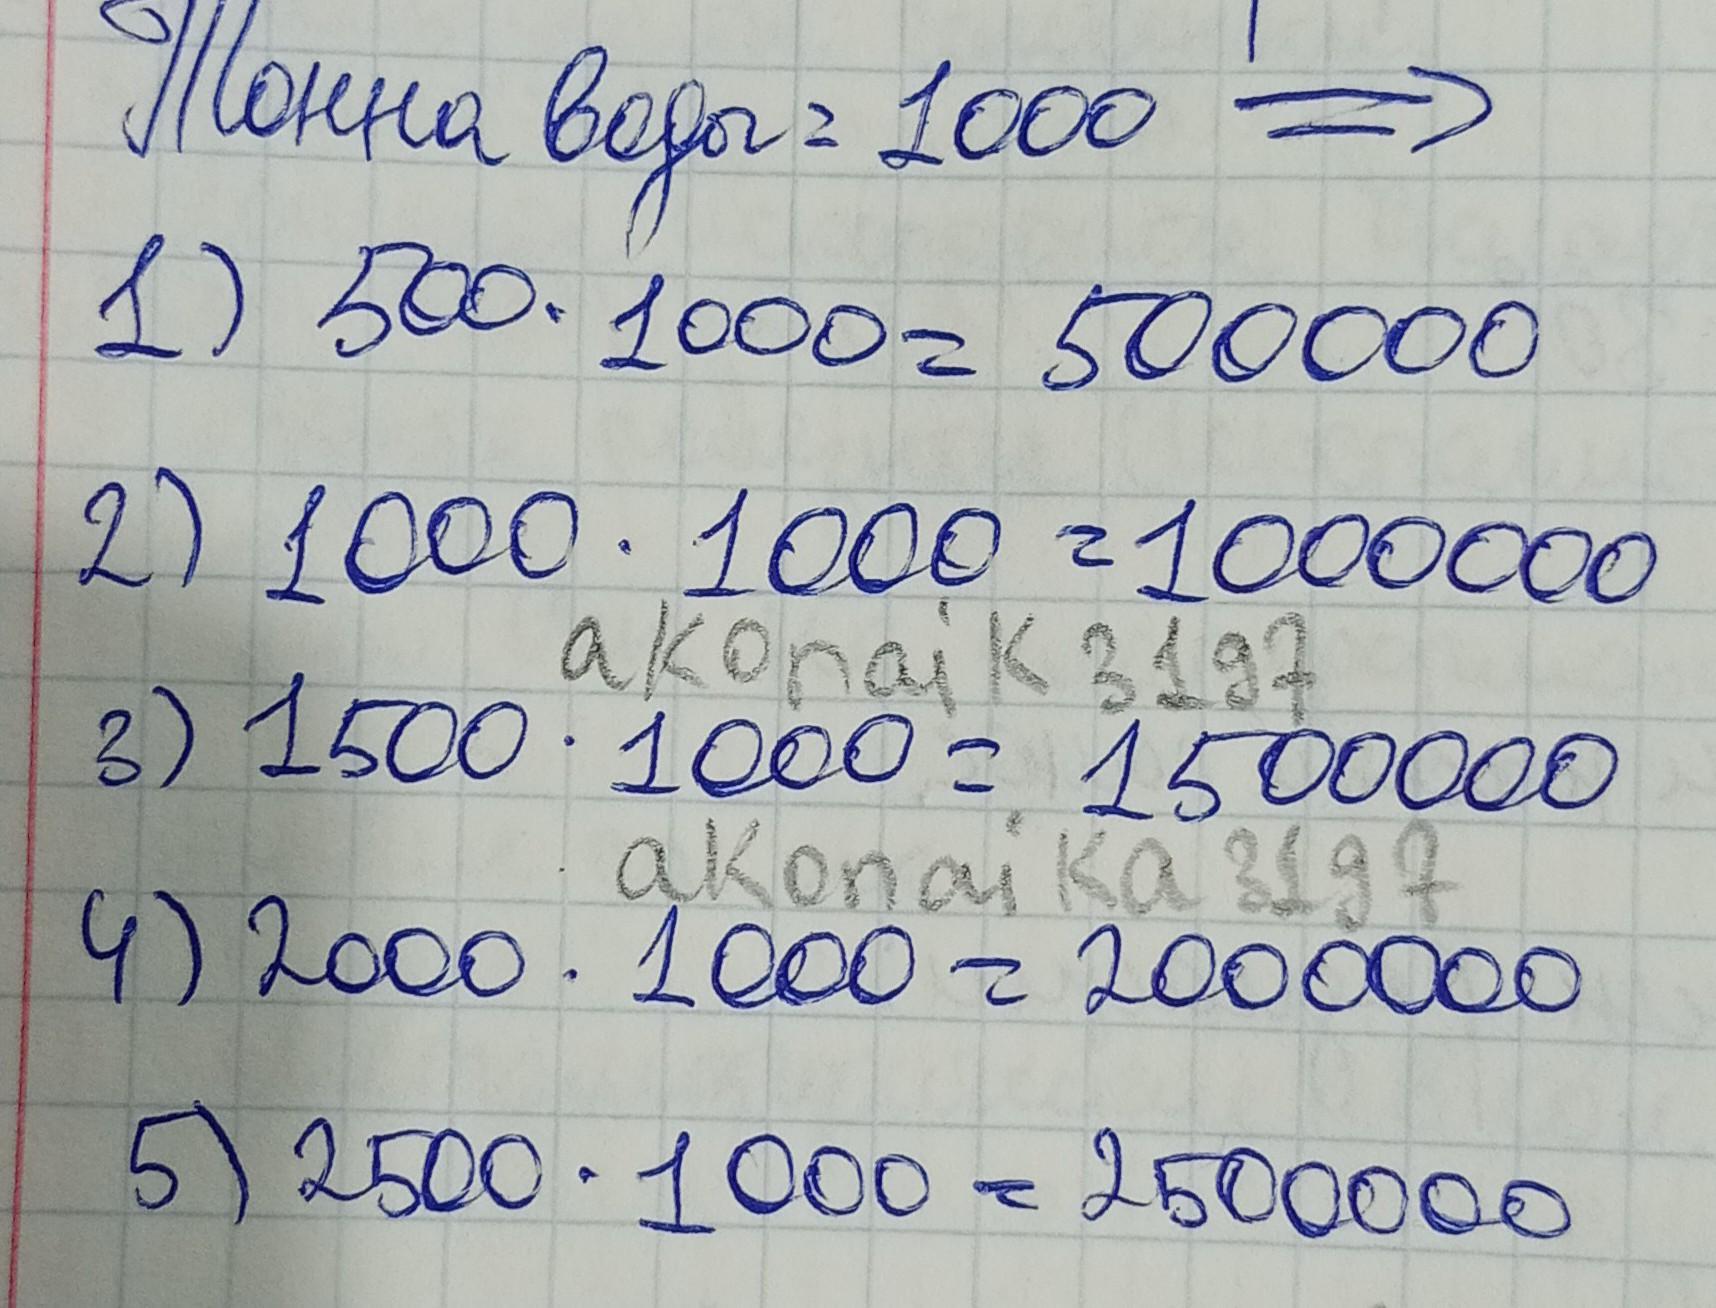 Тонна воды = 1000 =>
1) 500 · 1000 = 500000
2) 1000 · 1000 = 1000000
akonaik3197
3) 1500 · 1000 = 1500000
akonaika3197
4) 2000 · 1000 = 2000000
5) 2500 · 1000 = 2500000